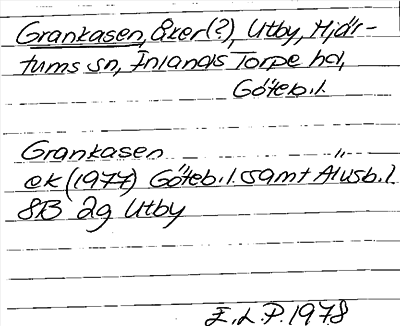 Grankasen, åker(?), Utby, Hjär-
tums sn, Inlands Torpe hd,
Göteb.l.
Grankasen
ek (1977) Göteb.l. samt Älvsb.l.
8B 2g Utby
E.L.P. 1978